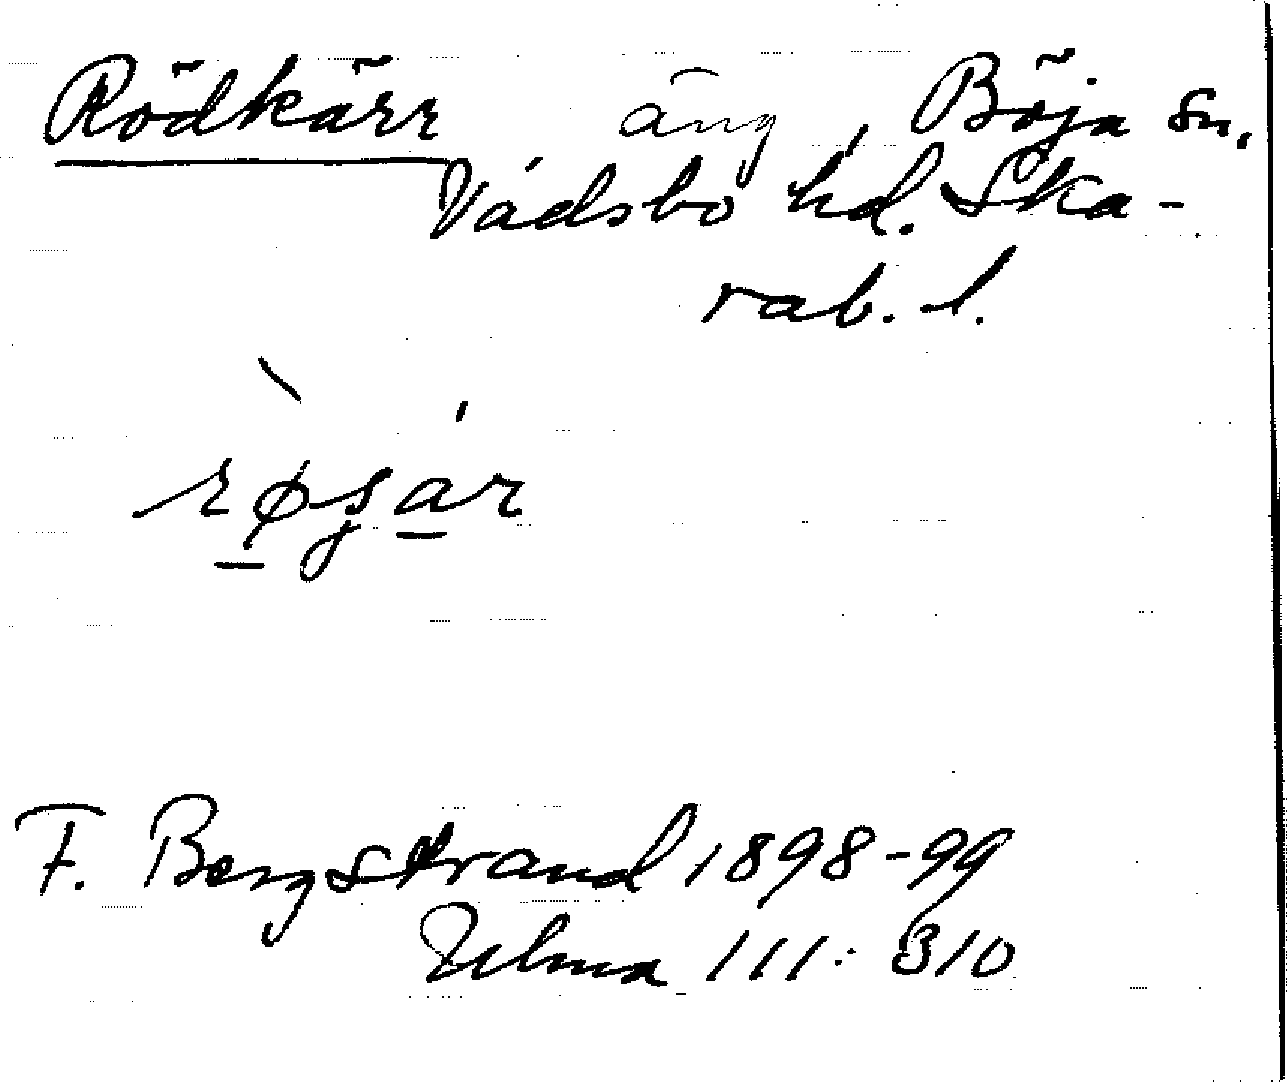 Rödkärr äng, Böja sn.
Vadsbo hd. Ska-
rab. l.
F. Bergstrand 1898-99
Ulma 111: 310